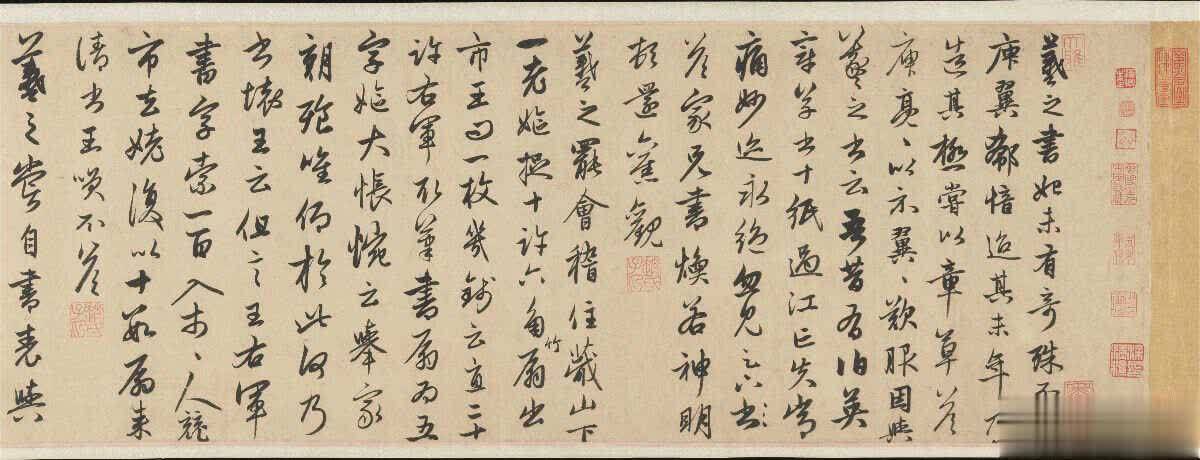 羲之書始未有奇殊而
庾翼郗愔迨其末年乃
造其極嘗以章草答
庾亮亮以示翼翼歎服因與
羲之書云吾昔有伯英
章草書十紙過江亡失常
痛妙迹永絕忽見足下書
答家兄書煥若神明
頓還舊觀
羲之罷會稽住蕺山下
一老嫗捉十許六角竹扇出
市王問一枚幾錢云直二十
許右軍取筆書扇為五
字嫗大悵惋云舉家
朝飡唯仰於此何乃
書壞王云但言王右軍
書字索一百入市市人競
市去姥復以十數扇來
請書王笑不答
羲之嘗自書表與